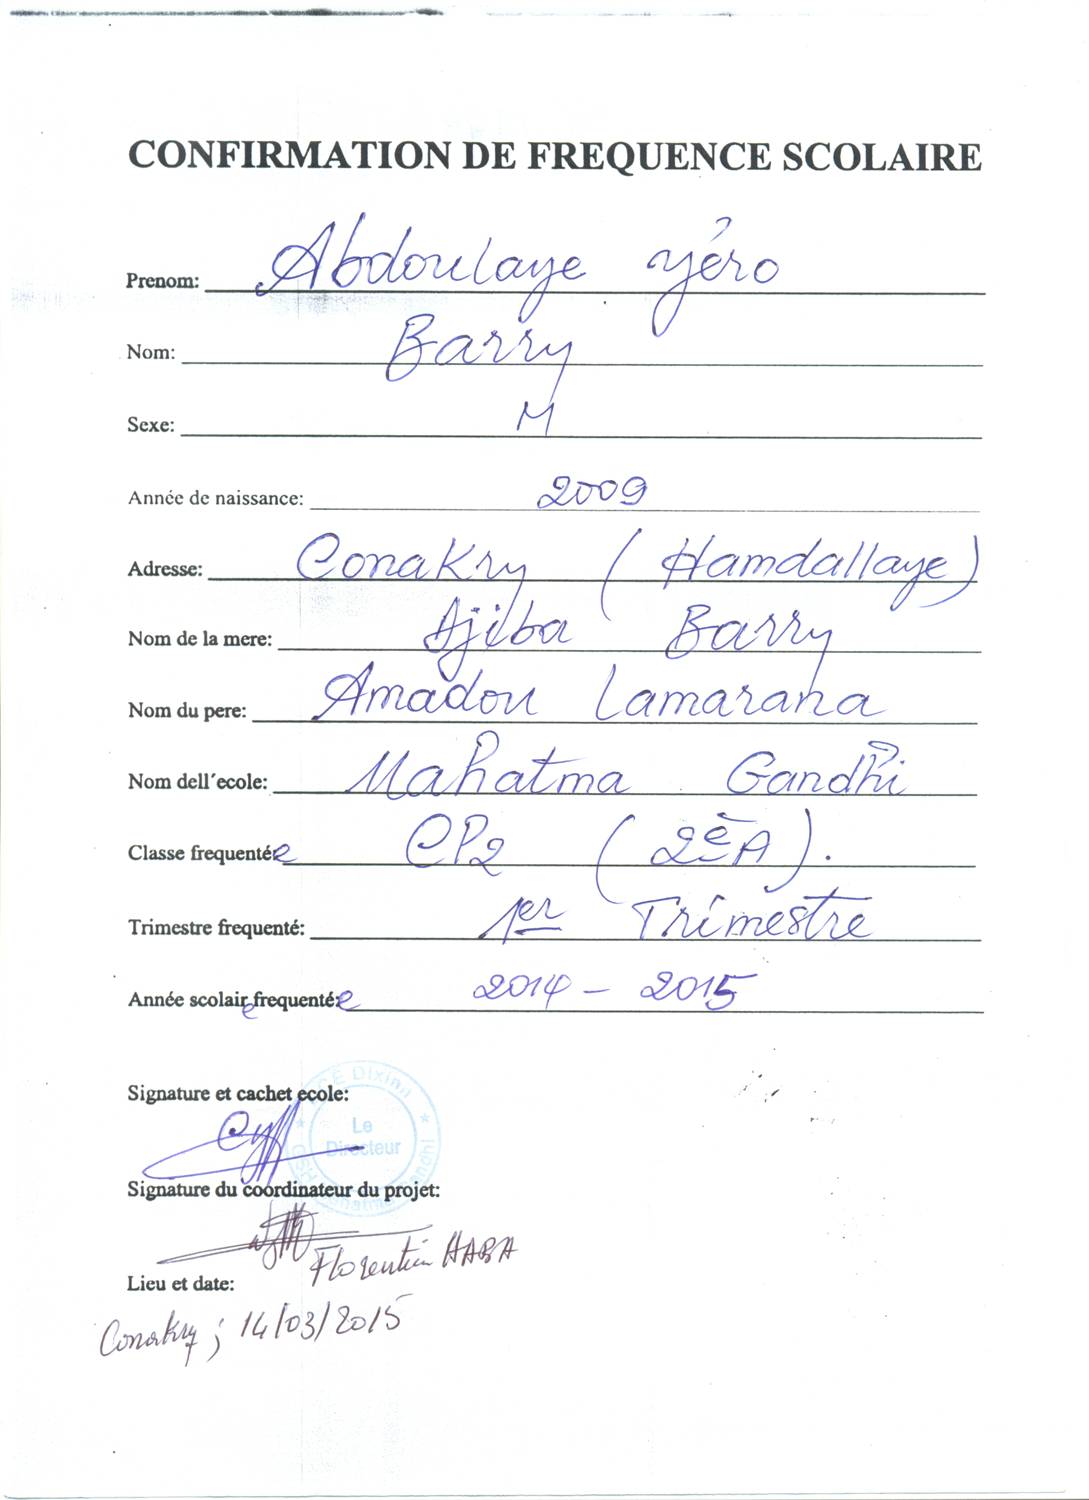 CONFIRMATION DE FREQUENCE SCOLAIRE
Prenom: Abdoulaye Yéro
Nom: Barry
Sexe: M
Année de naissance: 2009
Adresse: Conakry (Hamdallaye)
Nom de la mere: Ajiba Barry
Nom du pere: Amadou Lamarana
Nom dell´ecole: Mahatma Gandhi
Classe frequentée: CP2 (2è A).
Trimestre frequenté: 1er Trimestre
Année scolaire frequentée: 2014 - 2015
Signature et cachet ecole:
DCE Dixinn
Le
Directeur
Mahatma Gandhi
Signature du coordinateur du projet:
Florentin HABA
Lieu et date:
Conakry; 14/03/2015